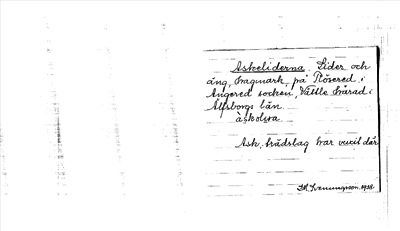 Askeliderna. Lider och
äng, hagmark, på Rösered i
Angered socken, Vättle härad i
Älfsborgs län.
askolwa
Ask, trädslag har vuxit där
1928